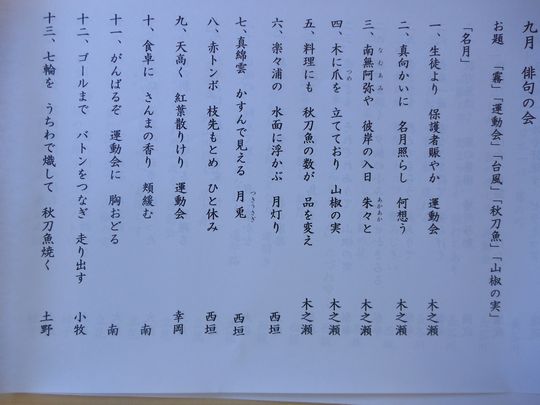 九月　俳句の会
お題　「霧」「運動会」「台風」「秋刀魚」「山椒の実」
「名月」
一、生徒より　保護者賑やか　運動会　木之瀬
二、真向かいに　名月照らし　何想う　木之瀬
三、南無阿弥や　彼岸の入日　朱々と　木之瀬
なむあみ
あかあか
四、木に爪を　立てており　山椒の実　木之瀬
つめ
五、料理にも　秋刀魚の数が　品を変え　木之瀬
六、楽々浦の　水面に浮かぶ　月灯り　西垣
七、真綿雲　かすんで見える　月兎　西垣
つきうさぎ
八、赤トンボ　枝先もとめ　ひと休み　西垣
九、天高く　紅葉散りけり　運動会　幸岡
十、食卓に　さんまの香り　頬緩む　南
十一、がんばるぞ　運動会に　胸おどる　南
十二、ゴールまで　バトンをつなぎ　走り出す　小牧
十三、七輪を　うちわで熾して　秋刀魚焼く　土野